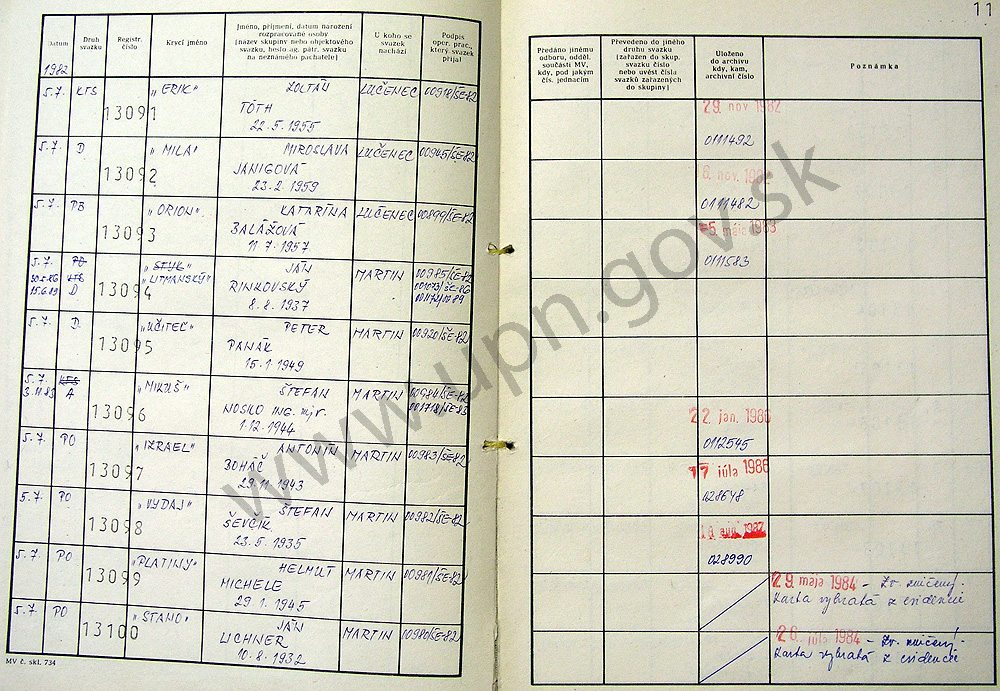 11
Datum
Druh svazku
Registr. číslo
Krycí jméno
Jméno, příjmení, datum narození
rozpracované osoby
(název skupiny nebo objektového
svazku, heslo ag. pátr. svazku
na neznámého pachatele)
U koho se
svazek
nachází
Podpis
oper. prac.,
který svazek
přijal
Předáno jinému
odboru, odděl.
součásti MV,
kdy, pod jakým
čís. jednacím
Převedeno do jiného
druhu svazku
(zařazen do skup.
svazku číslo
nebo uvést čísla
svazků zařazených
do skupiny)
Uloženo
do archivu
kdy, kam,
archivní číslo
Poznámka
1982
5.7. KTS 13091 „ERIK" ZOLTÁN LUČENEC 00918/ŠE-82
TÓTH
22.5.1955
29. nov 1982
0111492
5.7. D 13092 „MILA" MIROSLAVA LUČENEC 00945/ŠE-82
JANIGOVÁ
23.2.1959
8. nov. 1982
0111482
5.7. PB 13093 „ORION" KATARÍNA LUČENEC 00899/ŠE-82
BALÁŽOVÁ
11.7.1957
5. mája 1983
0111583
5.7. PO 13094 „STYK" JÁN MARTIN 00985/ŠE-82
KTS „LITMANSKÝ" RINKOVSKÝ
D 8.8.1937
5.7. D 13095 „UČITEĽ" PETER MARTIN 00920/ŠE-82
PANÁK
15.1.1949
5.7. KTS 13096 „MIKUŠ" ŠTEFAN MARTIN 00984/ŠE-82
3.11.83 A NOSKO ING. mjr. 001718/ŠE-83
1.12.1944
22. jan. 1986
0112545
5.7. PO 13097 „IZRAEL" ANTONÍN MARTIN 00983/ŠE-82
BOHÁČ
29.11.1943
17 júla 1986
028648
5.7. PO 13098 „VYDAJ" ŠTEFAN MARTIN 00982/ŠE-82
ŠEVČÍK
23.5.1935
1987
028990
5.7. PO 13099 „PLATINY" HELMUT MARTIN 00981/ŠE-82
MICHELE
29.1.1945
29. mája 1984 - Zv. zničený.
Karta vybratá z evidencie
5.7. PO 13100 „STANO" JÁN MARTIN 00980/ŠE-82
LICHNER
10.8.1932
26. júla 1984 - Zv. zničený
Karta vybratá z evidencie
MV č. skl. 734
www.upn.gov.sk